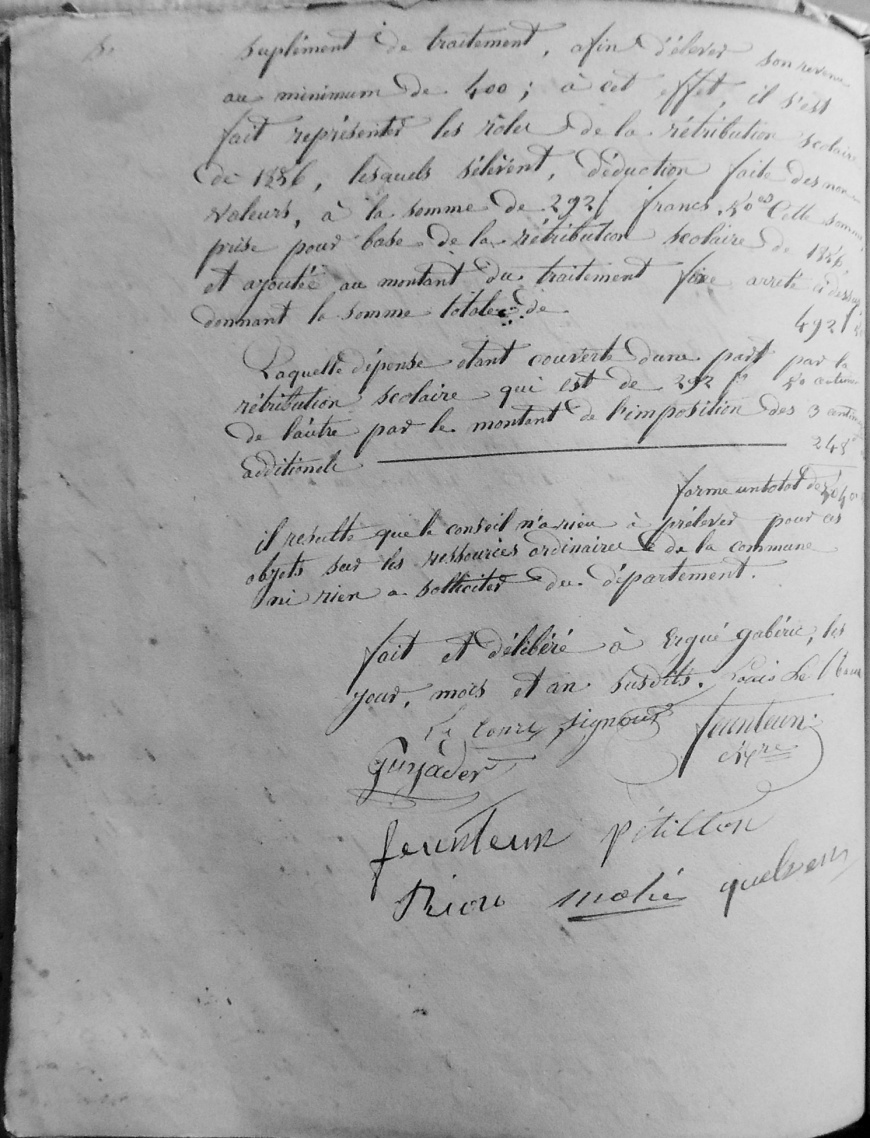 suplément de traitement, afin d'élever son revenu
au minimum de 400 ; à cet effet, il s'est
fait représenter les rôles de la rétribution scolaire
de 1886, lesquels s'élèvent, déduction faite des non
valeurs, à la somme de 292 francs, 50 ces Cette somme
prise pour base de la rétribution scolaire de
et ajoutée au montant du traitement fixe arrêté ci dessus
donnant la somme totale de 492 f
Laquelle dépense étant couverte d'une part par la
rétribution scolaire qui est de 292 fr 50 centimes
de l'autre par le montant de l'imposition des 3 centimes
additionels 248
forme un total de
il résulte que le conseil n'a rien à prélever pour ces
objets sur les ressources ordinaires de la commune
ni rien a solliciter du département.
fait et délibéré à Ergué gabéric, les
jour, mois et an susdits. Louis Le
signour feunteun
Guyader
feunteun pétillon
Riou mahé quelven